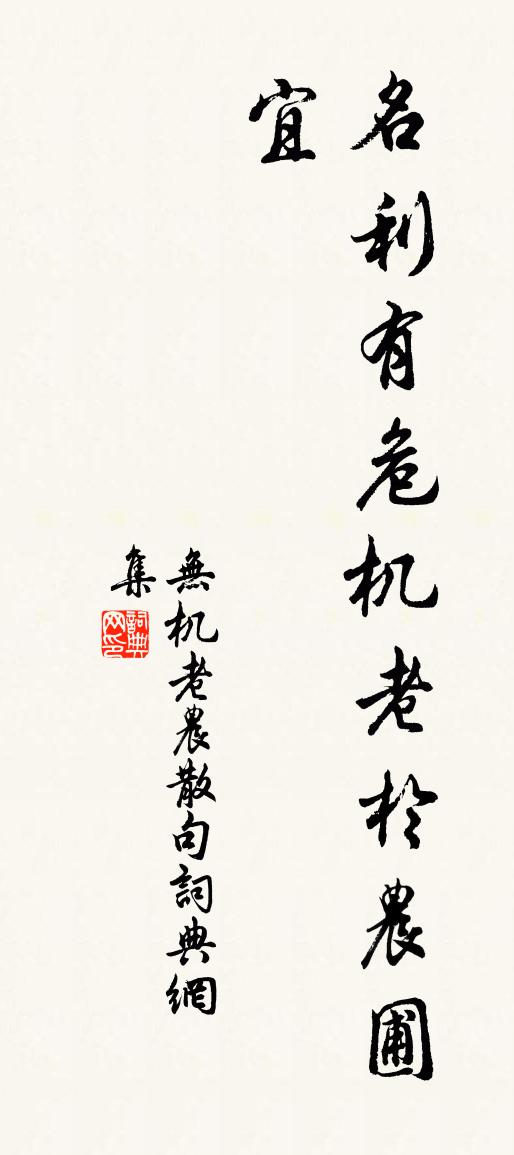 名利有危机老於農圃
宜
無机老農散句詞典網
集
詞典
网印